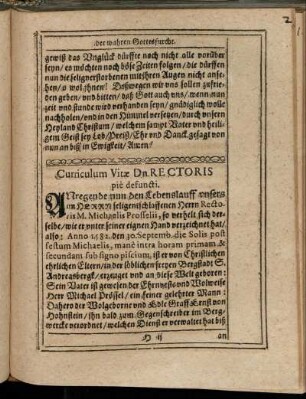 der wahren Gottesfurcht.
gewiß das Unglück dürffte noch nicht alle vorüber
seyn/ es möchten noch böse Zeiten folgen/ die dürffen
nun die seligverstorbenen mit ihren Augen nicht anse-
hen/ o wol ihnen! Deßwegen wir uns sollen zufrie-
den geben/ und bitten/ daß Gott auch uns/ wenn una
zeit und stunde wird verhanden seyn/ gnädiglich wolle
nachholen/ und in den Himmel versetzen/ durch unsern
Heyland Christum/ welchem sampt Vater und heili-
gem Geist sey Lob/ Preiß/ Ehr und Danck gesagt von
nun an biß in Ewigkeit/ Amen/
Curriculum Vitæ Dn. RECTORIS
piè defuncti.
ANreygende nun den Lebenslauff unsers
im HERRN seligentschlaffenen Herrn Recto-
ris M. Michaelis Prosselii, so verhelt sich der-
selbe/ wie er unter seiner eignen Hand verzeichnet hat/
also: Anno 1582. den 30. Septemb. die Solis post
festum Michaelis, manè intra horam primam &
secundam sub signo piscium, ist er von Christlichen
ehrlichen Eltern/ in der löblichen freyen Bergstadt S.
Andreasbergk/ erzeuget und an diese Welt geboren:
Sein Vater ist gewesen der Ehrnveste und Wolweise
Herr Michael Prössel/ ein feiner gelehrter Mann:
Dahero der Wolgeborne und Edle Graff Ernst von
Hohnstein/ ihn bald zum Gegenschreiber im Berg-
wercke verordnet/ welchen Dienst er verwaltet hat biß
H ij an